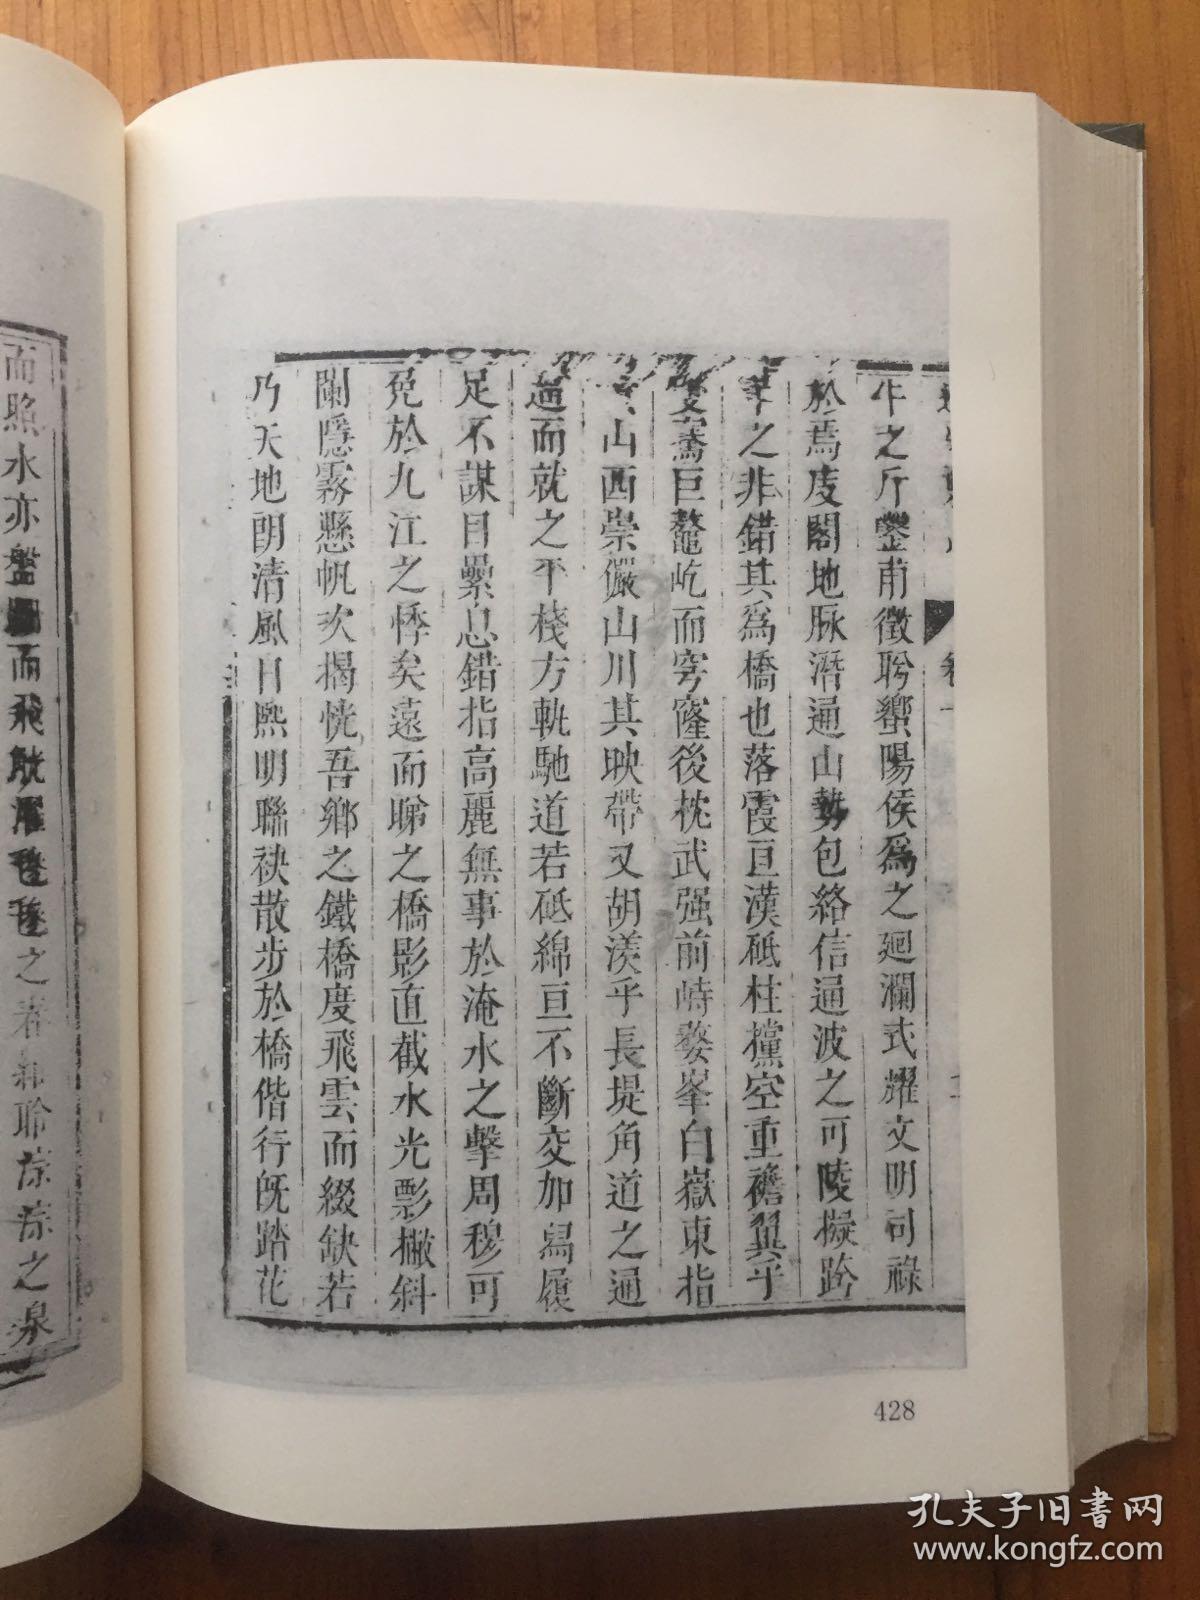 牛之斤鑿甫徵聆蠁陽侯爲之廻瀾式耀文明司祿
於焉庋閣地脉潛通山勢包絡信通波之可陵擬跨
之非錯其爲橋也落霞亘漢砥柱攩空重簷翼乎
騫巨鼇屹而穹窿後枕武强前峙婺峯白嶽東指
山西崇儼山川其映帶又胡渼乎長堤角道之通
逌而就之平棧方軌馳道若砥綿亘不斷交加舄履
足不謀目纍息錯指高麗無事於淹水之擊周穆可
免於九江之悸矣遠而睇之橋影直截水光彯撇斜
闌隱霧懸帆次揭恍吾鄉之鐵橋度飛雲而綴缺若
乃天地朗清風日熙明聯袂散步於橋偕行旣踏花
而照水亦盤
而飛
之
聆淙淙之泉
428
孔夫子旧书网
www.kongfz.com